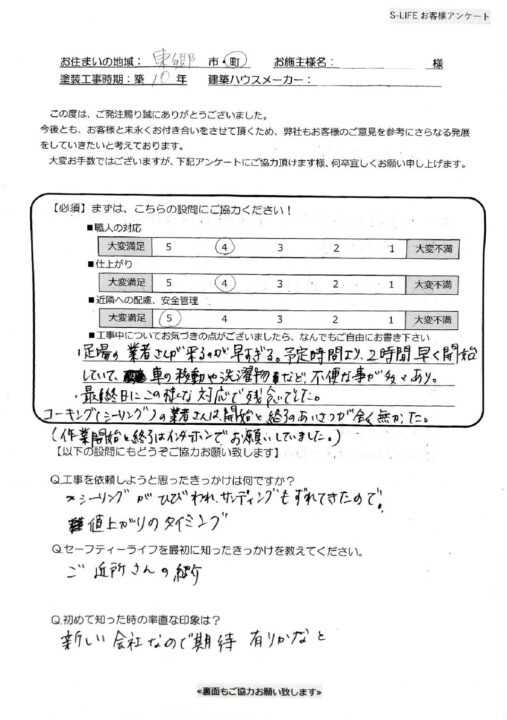 S-LIFE お客様アンケート
お住まいの地域： 東郷 市・町 お施主様名： 様
塗装工事時期：築 10 年 建築ハウスメーカー：
この度は、ご発注賜り誠にありがとうございました。
今後とも、お客様と末永くお付き合いをさせて頂くため、弊社もお客様のご意見を参考にさらなる発展
をしていきたいと考えております。
大変お手数ではございますが、下記アンケートにご協力頂けます様、何卒宜しくお願い申し上げます。
【必須】まずは、こちらの設問にご協力ください！
■職人の対応
大変満足 5 4 3 2 1 大変不満
■仕上がり
大変満足 5 4 3 2 1 大変不満
■近隣への配慮、安全管理
大変満足 5 4 3 2 1 大変不満
■工事中についてお気づきの点がございましたら、なんでもご自由にお書き下さい
・足場の業者さんが来るのが早すぎる。予定時間より、2時間早く開始
していて、車の移動や洗濯物など、不便な事が多々あり。
・最終日にこの様な対応で残念でした。
コーキング(シーリング)の業者さんは、開始と終了のあいさつが全く無かった。
(作業開始と終了はインターホンでお願いしていました。)
【以下の設問にもどうぞご協力お願い致します】
Q.工事を依頼しようと思ったきっかけは何ですか？
シーリングがひびわれ、サンディングもずれてきたので。
値上がりのタイミング
Q.セーフティーライフを最初に知ったきっかけを教えてください。
ご近所さんの紹介
Q.初めて知った時の率直な印象は？
新しい会社なので期待有りかなと
≪裏面もご協力お願い致します≫